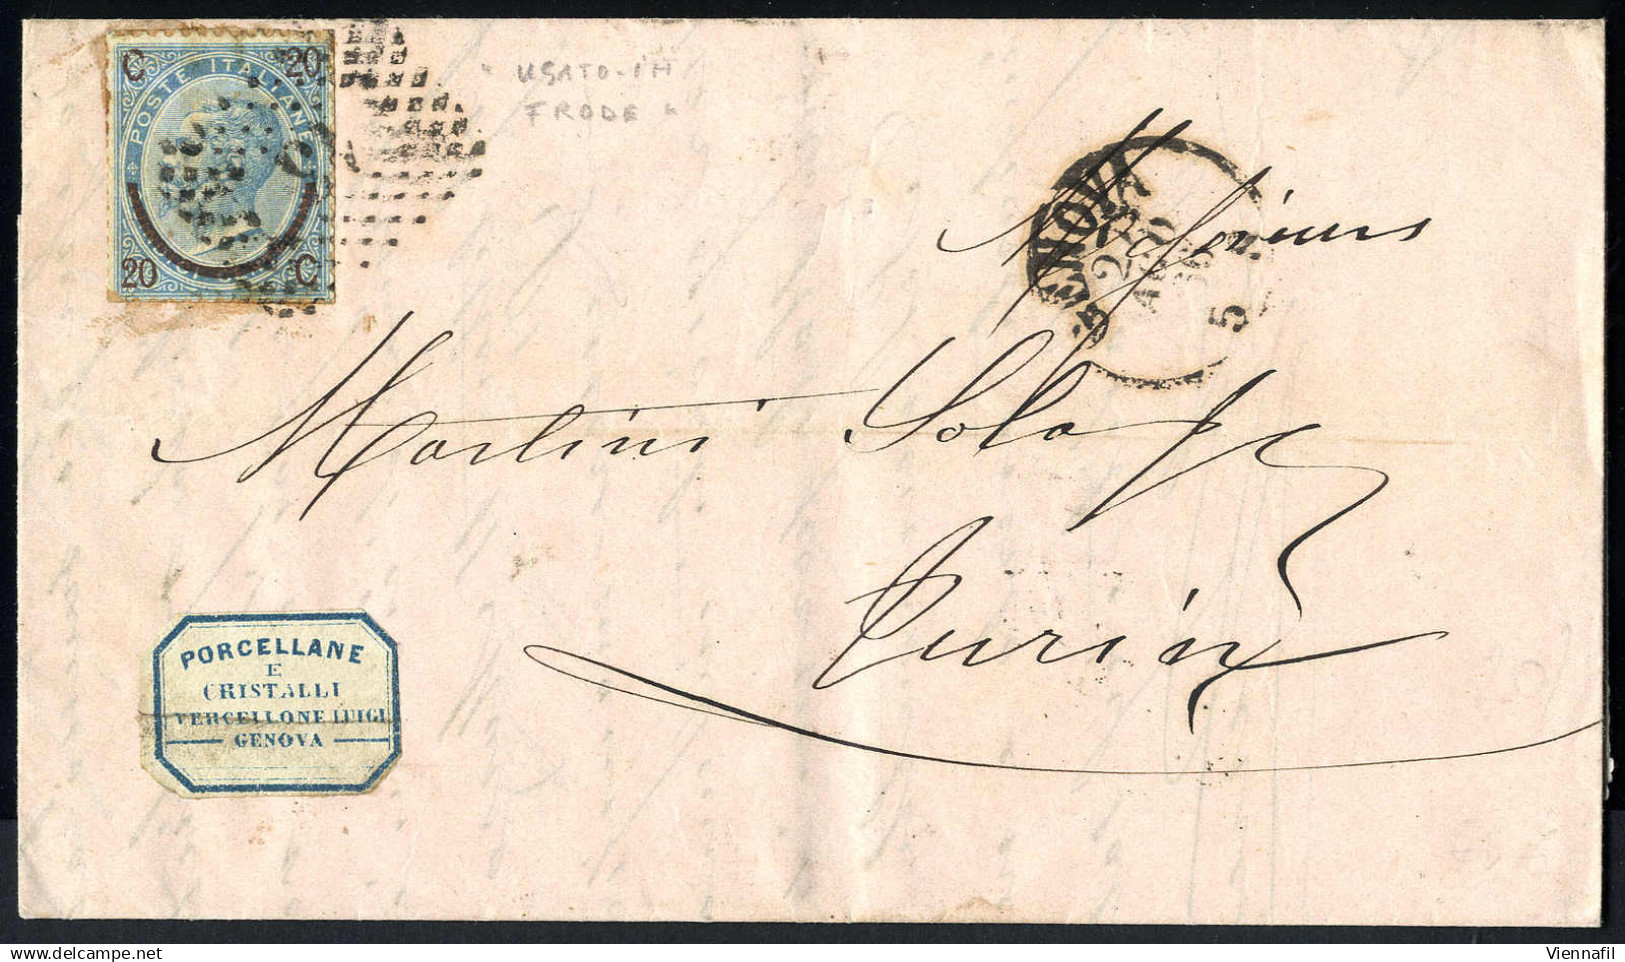 C 20
POSTE ITALIANE
20 C
" USATO-IN
FRODE "
GENOVA
27
AGO
66
5 S
Messieurs
Martini Sola &
Turin
PORCELLANE
E
CRISTALLI
VERCELLONE LUIGI
GENOVA
Viennafil